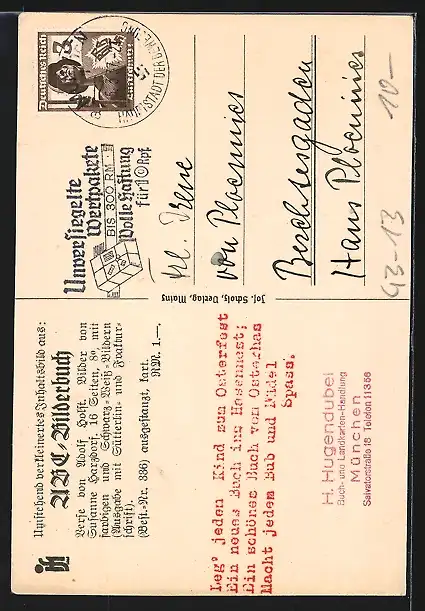 Umstehend verkleinertes Inhaltsbild aus:
ABC-Bilderbuch
Verse von Adolf Holst. Bilder von
Susanne Harzdorf. 16 Seiten, 8° mit
farbigen und Schwarz-Weiß-Bildern
(Ausgabe mit Sütterlin- und Fraktur-
schrift).
(Best.-Nr. 386) ausgestanzt, kart.
RM. 1.—.
Leg' jeden Kind zum Osterfest
Ein neues Buch ins Hasennest;
Ein schönes Buch vom Osterhas
Macht jedem Bub und Mädel
Spass.
H. Hugendubel
Buch- und Landkarten-Handlung
München
Salvatorstraße 18 Telefon 11356
Jos. Scholz, Verlag, Mainz
Unversiegelte
Wertpakete
BIS 300 RM
Volle Haftung
für 10 Rpf
Deutsches Reich
HAUPTSTADT DER BEWEGUNG
kl. Irene
von Ploennies
Berchtesgaden
Haus Ploennies
G3-13
10-